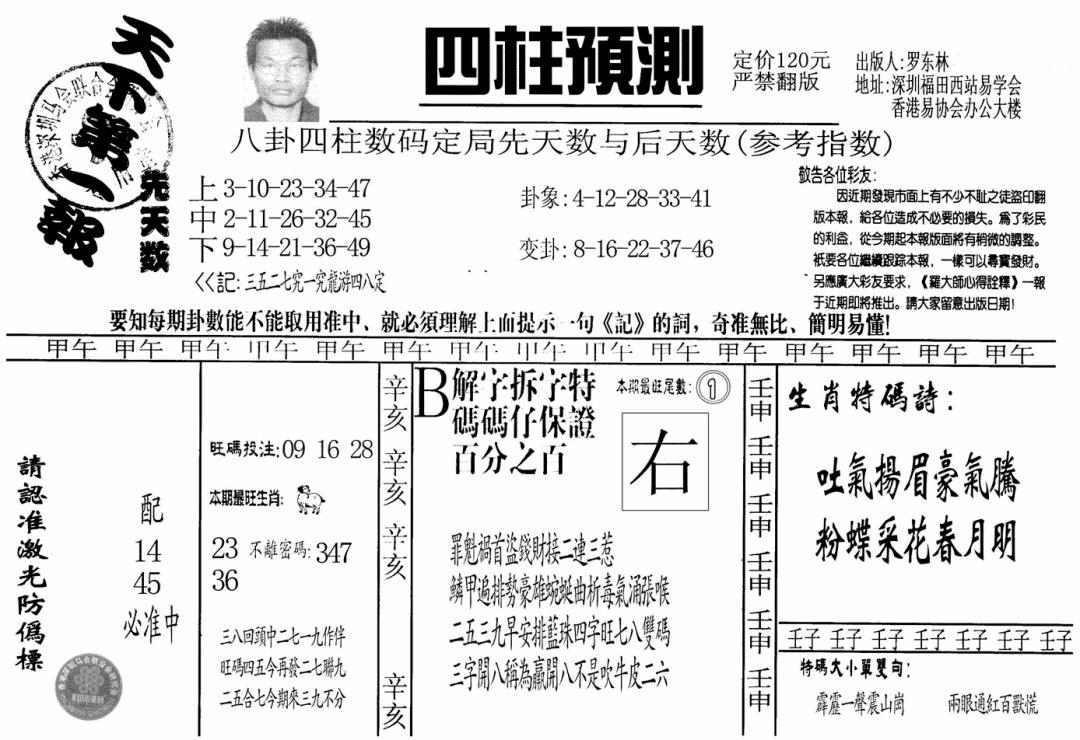 天下第一報
四柱預測
定价120元
严禁翻版
出版人:罗东林
地址:深圳福田西站易学会
香港易协会办公大楼
八卦四柱数码定局先天数与后天数(参考指数)
先天数
上 3-10-23-34-47
中 2-11-26-32-45
下 9-14-21-36-49
卦象:4-12-28-33-41
变卦:8-16-22-37-46
<<記:三五二七究一究龍游四八定
敬告各位彩友:
因近期發現市面上有不少不耻之徒盜印翻
版本報，給各位造成不必要的損失。爲了彩民
的利益，從今期起本報版面將有稍微的調整。
衹要各位繼續跟踪本報，一樣可以尋寶發財。
另應廣大彩友要求，《羅大師心得詮釋》一報
于近期即將推出。請大家留意出版日期！
要知每期卦數能不能取用准中、就必須理解上面提示一句《記》的詞，奇准無比、簡明易懂！
甲午 甲午 甲午 甲午 甲午 甲午 甲午 甲午 甲午 甲午 甲午 甲午 甲午 甲午 甲午
請認准激光防僞標
配
14
45
必准中
旺碼投注:09 16 28
本期最旺生肖:
23 不離密碼:347
36
三八回頭中二七一九作伴
旺碼四五今再發二七聯九
二五合七今期來三九不分
辛亥 辛亥 辛亥 辛亥
B解字拆字特
碼碼仔保證
百分之百
本期最旺尾數:①
右
罪魁禍首盜錢財接二連三惹
鱗甲遍排勢豪雄蜿蜒曲析毒氣涌張喉
二五三九早安排藍珠四字旺七八雙碼
三字開八稱為贏開八不是吹牛皮二六
壬申 壬申 壬申 壬申 壬申 壬申
生肖特碼詩:
吐氣揚眉豪氣騰
粉蝶采花春月明
壬子 壬子 壬子 壬子 壬子 壬子 壬子
特碼大小單雙句:
霹靂一聲震山崗 兩眼通紅百獸慌